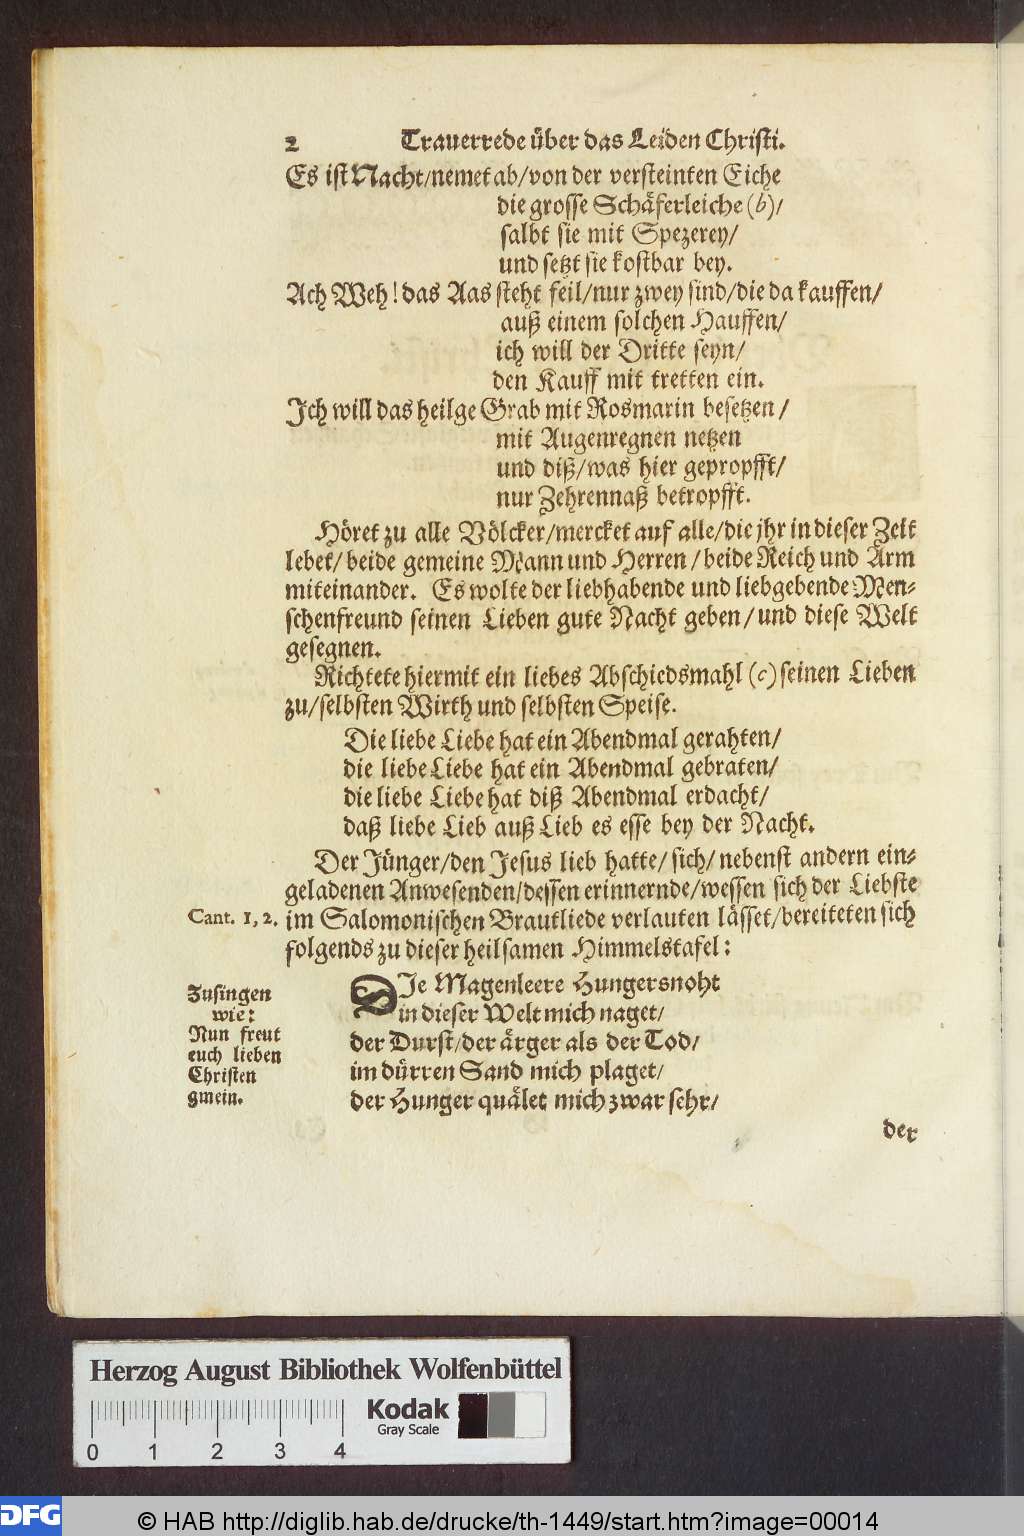 2 Trauerrede über das Leiden Christi.
Es ist Nacht/nemet ab/von der versteinten Eiche
die grosse Schäferleiche (b)/
salbt sie mit Spezerey/
und setzt sie kostbar bey.
Ach Weh! das Aas steht feil/nur zwey sind/die da kauffen/
auß einem solchen Hauffen/
ich will der Dritte seyn/
den Kauff mit tretten ein.
Ich will das heilge Grab mit Rosmarin besetzen/
mit Augenregnen netzen
und diß/was hier gepropfft/
nur Zehrennaß betropfft.
Höret zu alle Völcker/mercket auf alle/die jhr in dieser Zeit
lebet/ beide gemeine Mann und Herren/beide Reich und Arm
miteinander. Es wolte der liebhabende und liebgebende Men-
schenfreund seinen Lieben gute Nacht geben/und diese Welt
gesegnen.
Richtete hiermit ein liebes Abschiedsmahl (c) seinen Lieben
zu/selbsten Wirth und selbsten Speise.
Die liebe Liebe hat ein Abendmal gerahten/
die liebe Liebe hat ein Abendmal gebraten/
die liebe Liebe hat diß Abendmal erdacht/
daß liebe Lieb auß Lieb es esse bey der Nacht.
Der Jünger/den Jesus lieb hatte/ sich/ nebenst andern ein-
geladenen Anwesenden/dessen erinnernde/wessen sich der Liebste
Cant. 1, 2. im Salomonischen Brautliede verlauten lässet/bereiteten sich
folgends zu dieser heilsamen Himmelstafel:
Zusingen
wie:
Nun freut
euch lieben
Christen
gmein.
DIe Magenleere Hungersnoht
in dieser Welt mich naget/
der Durst/der ärger als der Tod/
im dürren Sand mich plaget/
der Hunger quälet mich zwar sehr/
der
Herzog August Bibliothek Wolfenbüttel
Kodak
Gray Scale
0 1 2 3 4
DFG © HAB http://diglib.hab.de/drucke/th-1449/start.htm?image=00014